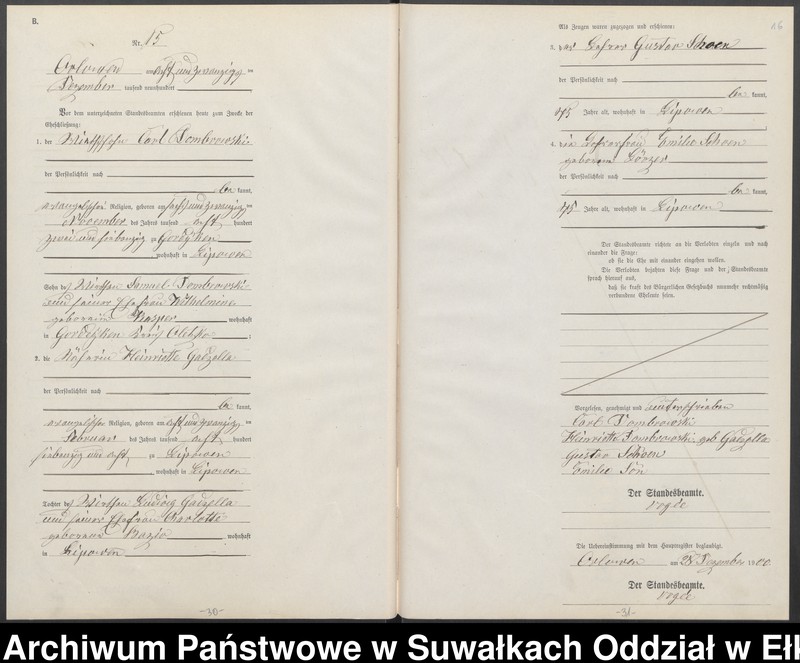 B.
Nr. 15
Orlowen am acht und zwanzigsten
Dezember tausend neunhundert
Vor dem unterzeichneten Standesbeamten erschienen heute zum Zwecke der
Eheschließung:
1. der Wirthssohn Carl Dombrowski
der Persönlichkeit nach
be kannt,
evangelischer Religion, geboren am
November des Jahres tausend acht hundert
zwei und siebenzig zu Gordeyken
, wohnhaft in Lipowen
Sohn des Wirthen Samuel Dombrowski
und seiner Ehefrau Wilhelmine
geborenen Kasper wohnhaft
in Gordeyken Kreis Oletzko ;
2. die Köchin Heinriette Gadzella
der Persönlichkeit nach
be kannt,
evangelischer Religion, geboren am acht und zwanzigsten
Februar des Jahres tausend acht hundert
siebenzig und acht zu Lipowen
, wohnhaft in Lipowen
Tochter des Wirthen Ludwig Gadzella
und seiner Ehefrau Charlotte
geborene wohnhaft
in Lipowen
-30-
116
Als Zeugen waren zugezogen und erschienen:
3. der Lehrer Gustav Schoen
der Persönlichkeit nach
be kannt,
45 Jahre alt, wohnhaft in Lipowen
;
4. die Lehrerfrau Emilie Schoen
geborene
der Persönlichkeit nach
be kannt,
45 Jahre alt, wohnhaft in Lipowen
Der Standesbeamte richtete an die Verlobten einzeln und nach
einander die Frage:
ob sie die Ehe mit einander eingehen wollen.
Die Verlobten bejahten diese Frage und der Standesbeamte
sprach hierauf aus,
daß sie kraft des Bürgerlichen Gesetzbuchs nunmehr rechtmäßig
verbundene Eheleute seien.
Vorgelesen, genehmigt und unterschrieben
Carl Dombrowski
Heinriette Dombrowski geb Gadzella
Gustav Schoen
Emilie Sön
Der Standesbeamte.
Vogee
Die Uebereinstimmung mit dem Hauptregister beglaubigt.
Orlowen am 28 Dezember 1900
Der Standesbeamte.
Vogee
-31-
Archiwum Państwowe w Suwałkach Oddział w Eł